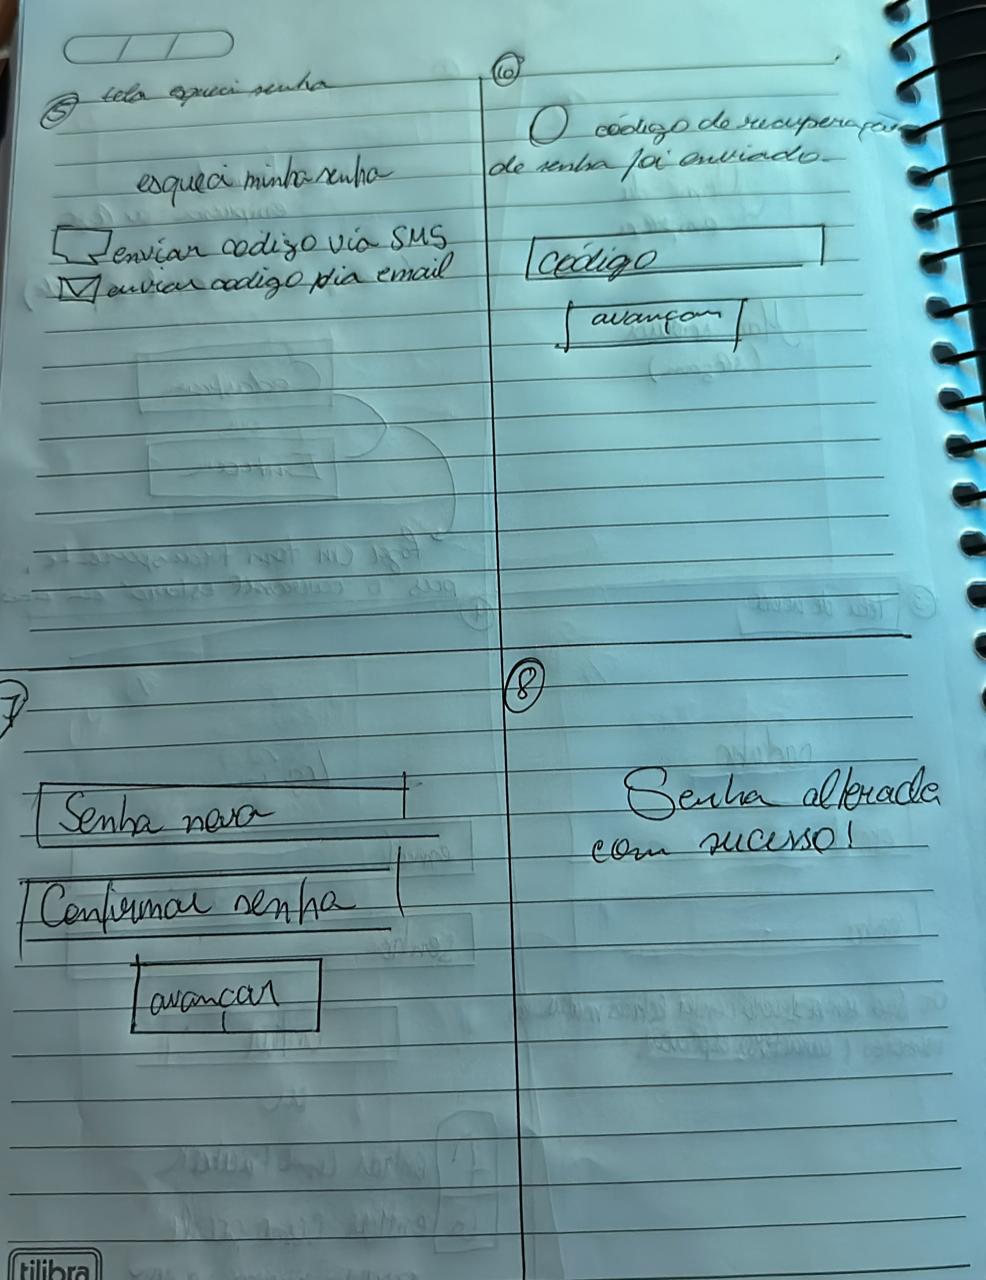 5 tela esqueci senha
esqueci minha senha
enviar codigo via SMS
enviar codigo via email
6
O código de recuperação
de senha foi enviado.
código
avançar
7
Senha nova
Confirmar senha
avançar
8
Senha alterada
com sucesso!
tilibra